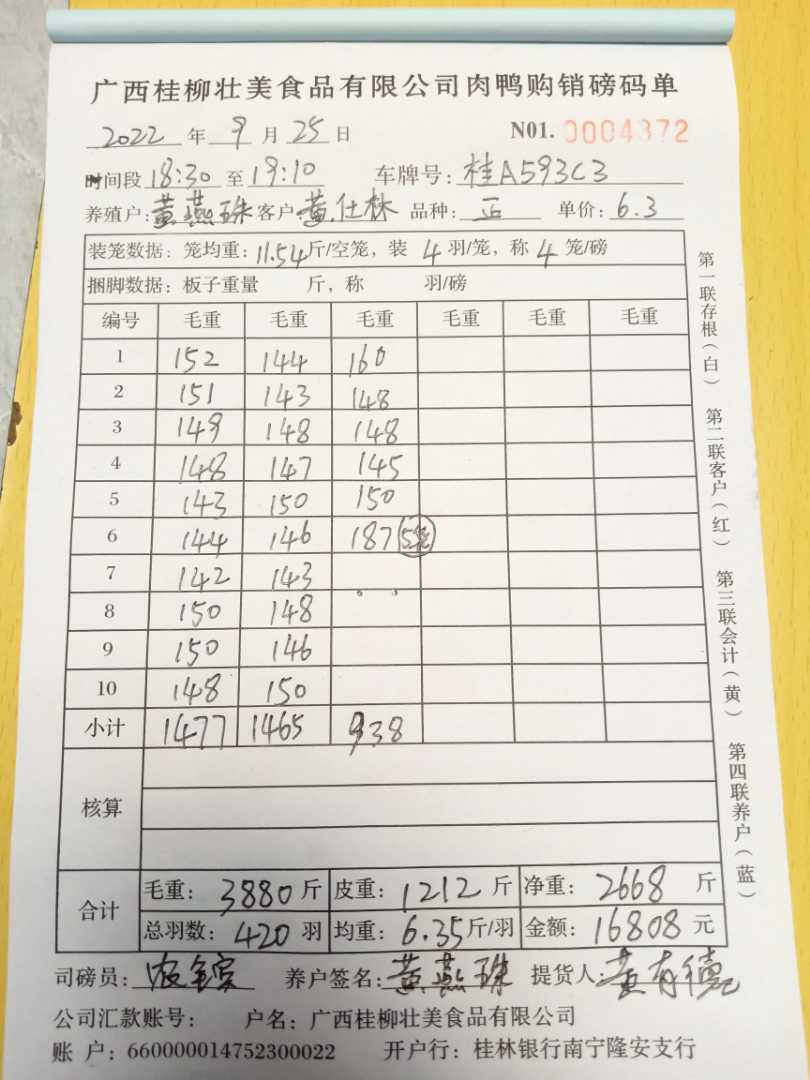 广西桂柳壮美食品有限公司肉鸭购销磅码单
2022 年 9 月 25 日 N01. 0004372
时间段 18:30 至 19:10 车牌号: 桂A593C3
养殖户: 黄燕珠 客户: 黄仕林 品种: 正 单价: 6.3
装笼数据: 笼均重: 11.54 斤/空笼, 装 4 羽/笼, 称 4 笼/磅
捆脚数据: 板子重量 斤, 称 羽/磅
编号 毛重 毛重 毛重 毛重 毛重 毛重
1 152 144 160
2 151 143 148
3 149 148 148
4 148 147 145
5 143 150 150
6 144 146 187 5笼
7 142 143
8 150 148
9 150 146
10 148 150
小计 1477 1465 938
核算
合计 毛重: 3880 斤 皮重: 1212 斤 净重: 2668 斤
总羽数: 420 羽 均重: 6.35 斤/羽 金额: 16808 元
司磅员: 养户签名: 黄燕珠 提货人: 黄有德
公司汇款账号: 户名: 广西桂柳壮美食品有限公司
账 户: 660000014752300022 开户行: 桂林银行南宁隆安支行
第一联存根(白) 第二联客户(红) 第三联会计(黄) 第四联养户(蓝)